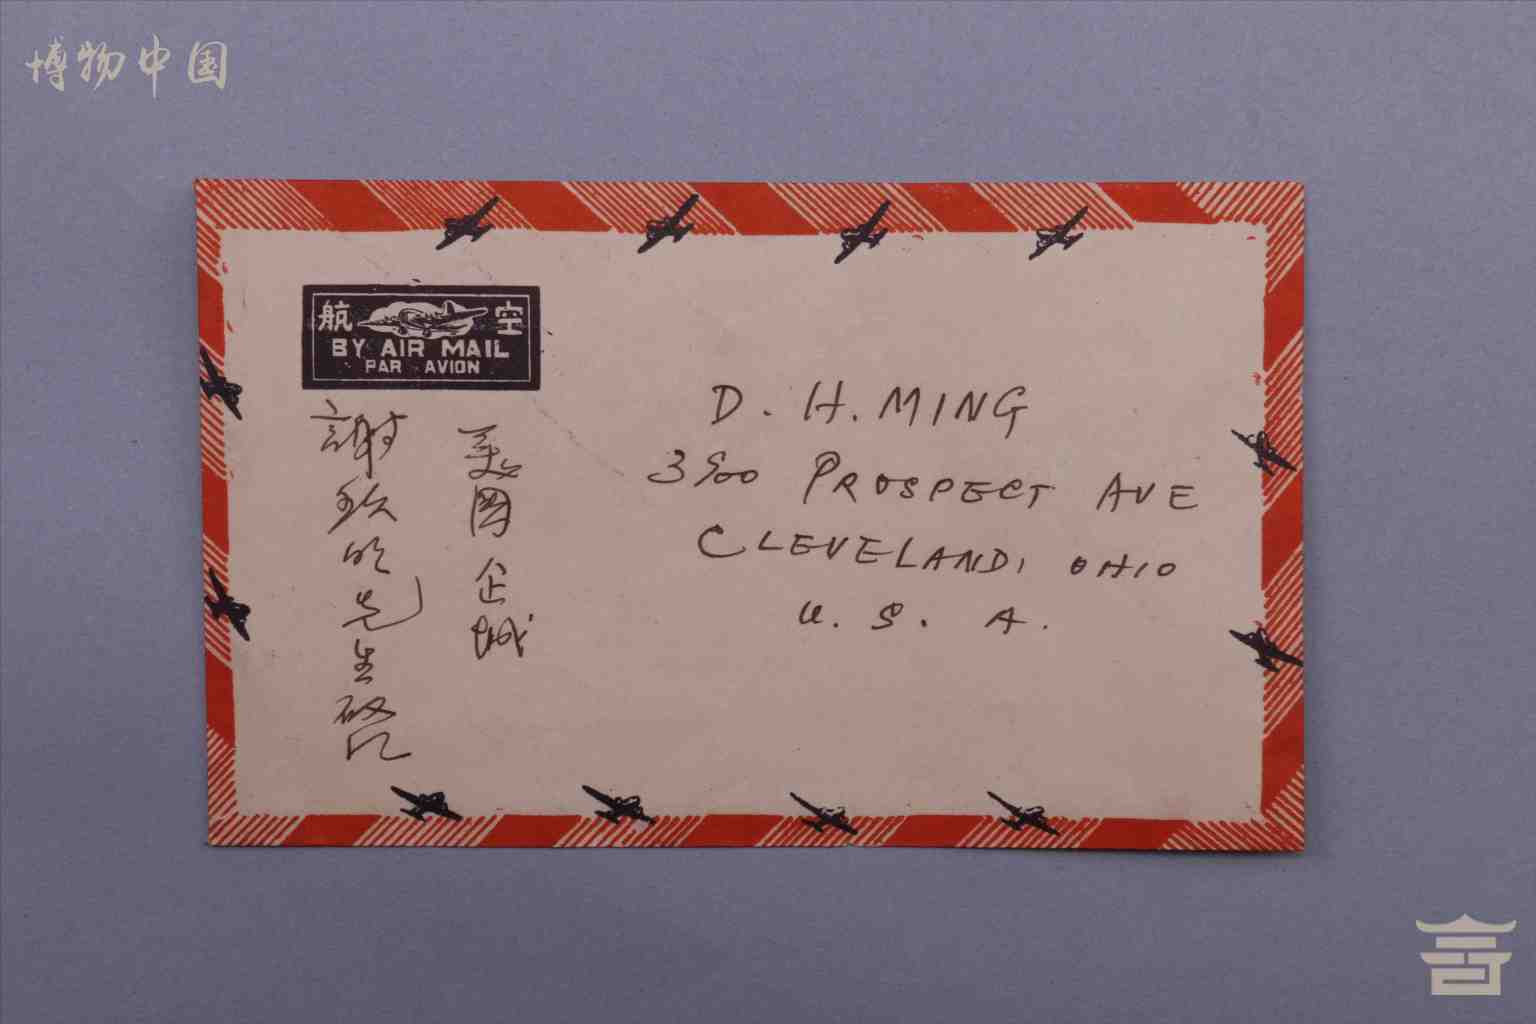 博物中国
航空
BY AIR MAIL
PAR AVION
D. H. MING
3900 PROSPECT AVE
CLEVELAND, OHIO
U. S. A.
美國企城
謝玖明先生啟